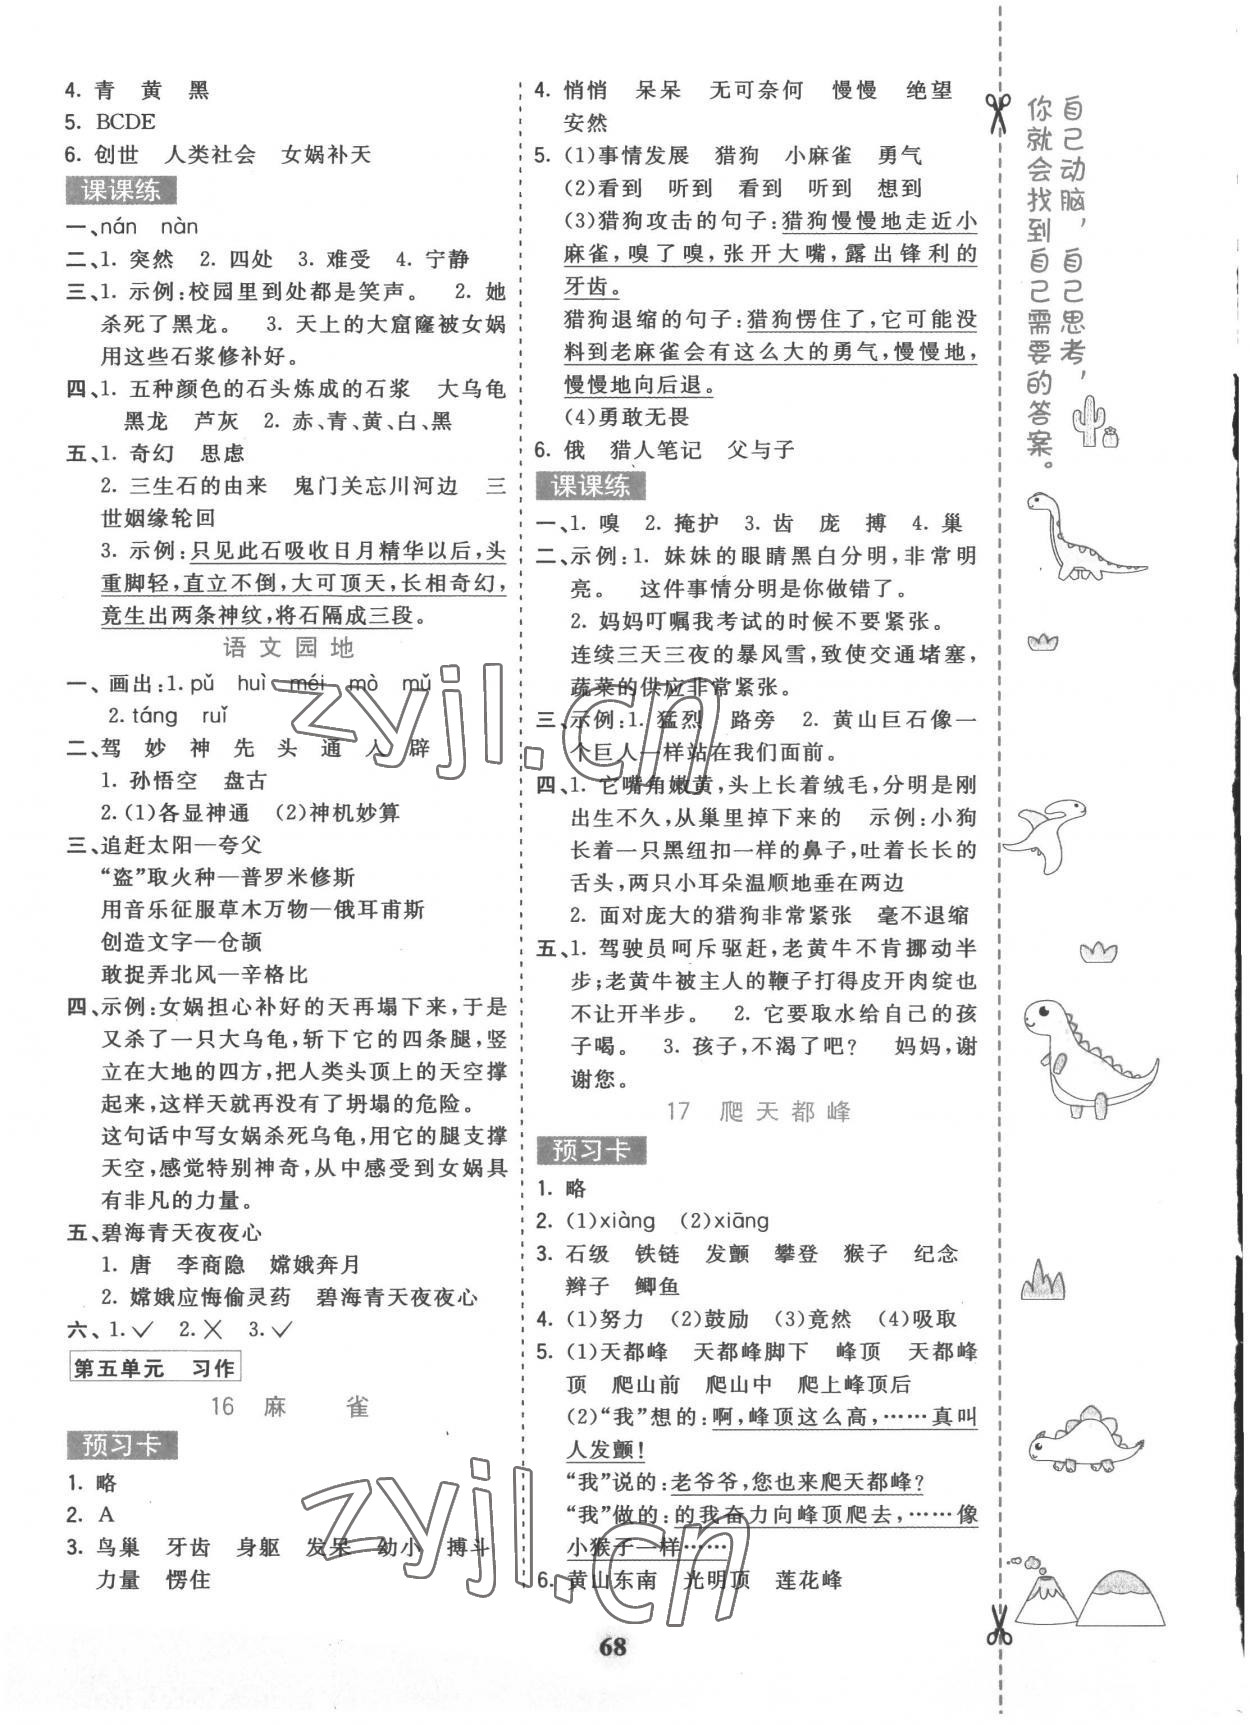 4. 青　黄　黑
5. BCDE
6. 创世　人类社会　女娲补天
课课练
一、nán　nàn
二、1. 突然　2. 四处　3. 难受　4. 宁静
三、1. 示例：校园里到处都是笑声。　2. 她
杀死了黑龙。　3. 天上的大窟窿被女娲
用这些石浆修补好。
四、1. 五种颜色的石头炼成的石浆　大乌龟
黑龙　芦灰　2. 赤、青、黄、白、黑
五、1. 奇幻　思虑
2. 三生石的由来　鬼门关忘川河边　三
世姻缘轮回
3. 示例：只见此石吸收日月精华以后，头
重脚轻，直立不倒，大可顶天，长相奇幻，
竟生出两条神纹，将石隔成三段。
语文园地
一、画出：1. pǔ　huì　méi　mò　mǔ
2. táng　ruǐ
二、驾　妙　神　先　头　通　人　辟
1. 孙悟空　盘古
2. (1)各显神通　(2)神机妙算
三、追赶太阳—夸父
“盗”取火种—普罗米修斯
用音乐征服草木万物—俄耳甫斯
创造文字—仓颉
敢捉弄北风—辛格比
四、示例：女娲担心补好的天再塌下来，于是
又杀了一只大乌龟，斩下它的四条腿，竖
立在大地的四方，把人类头顶上的天空撑
起来，这样天就没有了坍塌的危险。
这句话中写女娲杀死乌龟，用它的腿支撑
天空，感觉特别神奇，从中感受到女娲具
有非凡的力量。
五、碧海青天夜夜心
1. 唐　李商隐　嫦娥奔月
2. 嫦娥应悔偷灵药　碧海青天夜夜心
六、1. ✓　2. ✗　3. ✓
第五单元　习作
16　麻　雀
预习卡
1. 略
2. A
3. 鸟巢　牙齿　身躯　发呆　幼小　搏斗
力量　愣住
4. 悄悄　呆呆　无可奈何　慢慢　绝望
安然
5. (1)事情发展　猎狗　小麻雀　勇气
(2)看到　听到　看到　听到　想到
(3)猎狗攻击的句子：猎狗慢慢地走近小
麻雀，嗅了嗅，张开大嘴，露出锋利的
牙齿。
猎狗退缩的句子：猎狗愣住了，它可能没
料到老麻雀会有这么大的勇气，慢慢地，
慢慢地向后退。
(4)勇敢无畏
6. 俄　猎人笔记　父与子
课课练
一、1. 嗅　2. 掩护　3. 齿　庞　搏　4. 巢
二、示例：1. 妹妹的眼睛黑白分明，非常明
亮。　这件事情分明是你做错了。
2. 妈妈叮嘱我考试的时候不要紧张。
连续三天三夜的暴风雪，致使交通堵塞，
蔬菜的供应非常紧张。
三、示例：1. 猛烈　路旁　2. 黄山巨石像一
个巨人一样站在我们面前。
四、1. 它嘴角嫩黄，头上长着绒毛，分明是刚
出生不久，从巢里掉下来的　示例：小狗
长着一只黑纽扣一样的鼻子，吐着长长的
舌头，两只小耳朵温顺地垂在两边
2. 面对庞大的猎狗非常紧张　毫不退缩
五、1. 驾驶员呵斥驱赶，老黄牛不肯挪动半
步；老黄牛被主人的鞭子打得皮开肉绽也
不让开半步。　2. 它要取水给自己的孩
子喝。　3. 孩子，不渴了吧？　妈妈，谢
谢您。
17　爬天都峰
预习卡
1. 略
2. (1)xiàng　(2)xiāng
3. 石级　铁链　发颤　攀登　猴子　纪念
辫子　鲫鱼
4. (1)努力　(2)鼓励　(3)竟然　(4)吸取
5. (1)天都峰　天都峰脚下　峰顶　天都峰
顶　爬山前　爬山中　爬上峰顶后
(2)“我”想的：啊，峰顶这么高，……真叫
人发颤！
“我”说的：老爷爷，您也来爬天都峰？
“我”做的：的我奋力向峰顶爬去，……像
小猴子一样……
6. 黄山东南　光明顶　莲花峰
自己动脑，自己思考，
你就会找到自己需要的答案。
zyjl.cn
zyjl.cn
68